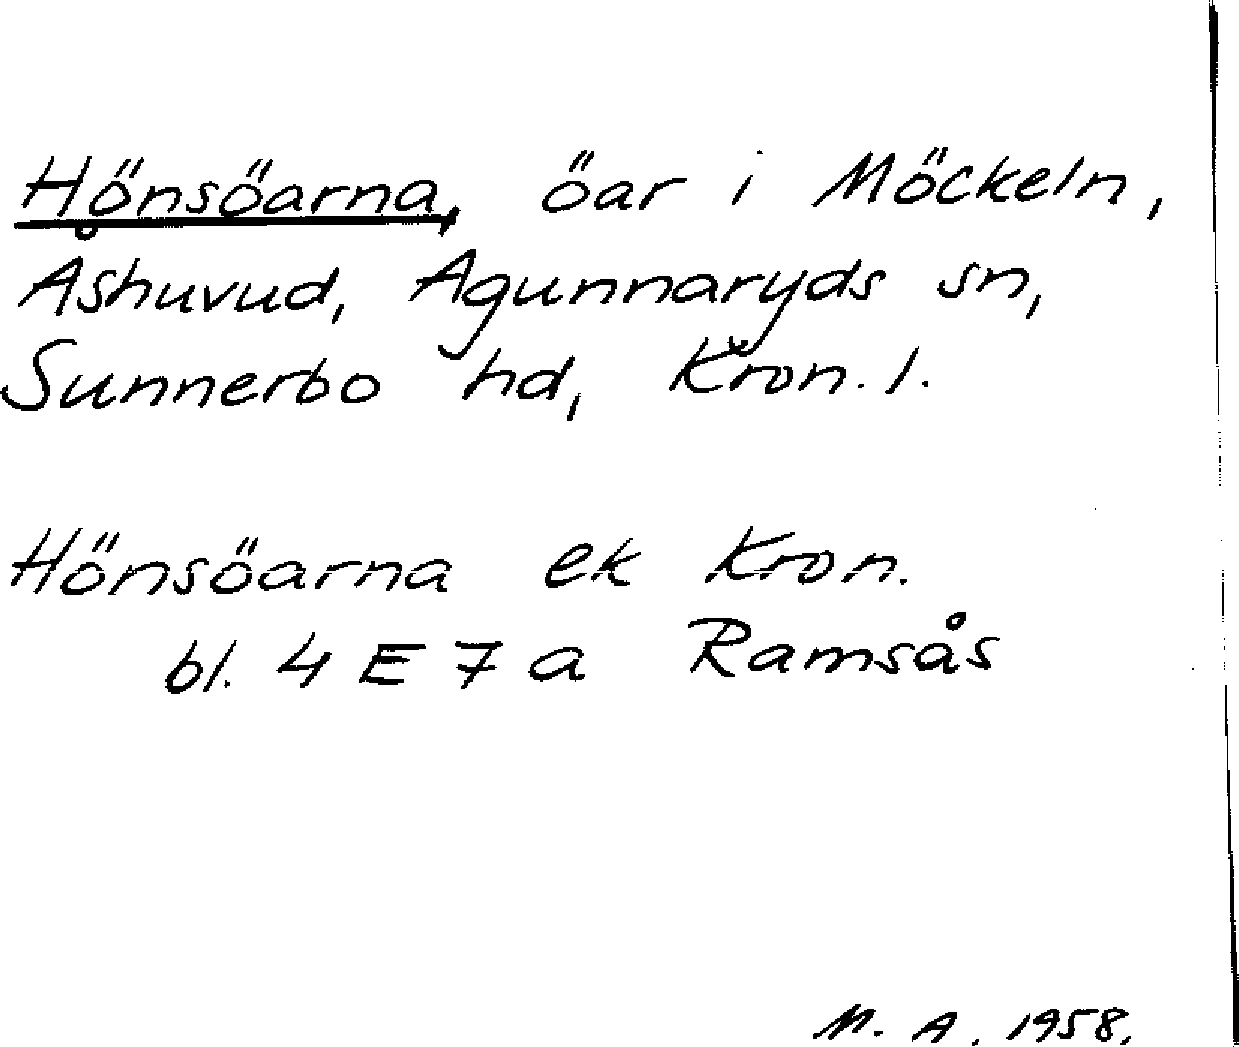 Hönsöarna, öar i Möckeln,
Åshuvud, Agunnaryds sn,
Sunnerbo hd, Kron. l.
Hönsöarna ek Kron.
bl. 4 E 7 a Ramsås
M. A. 1958.